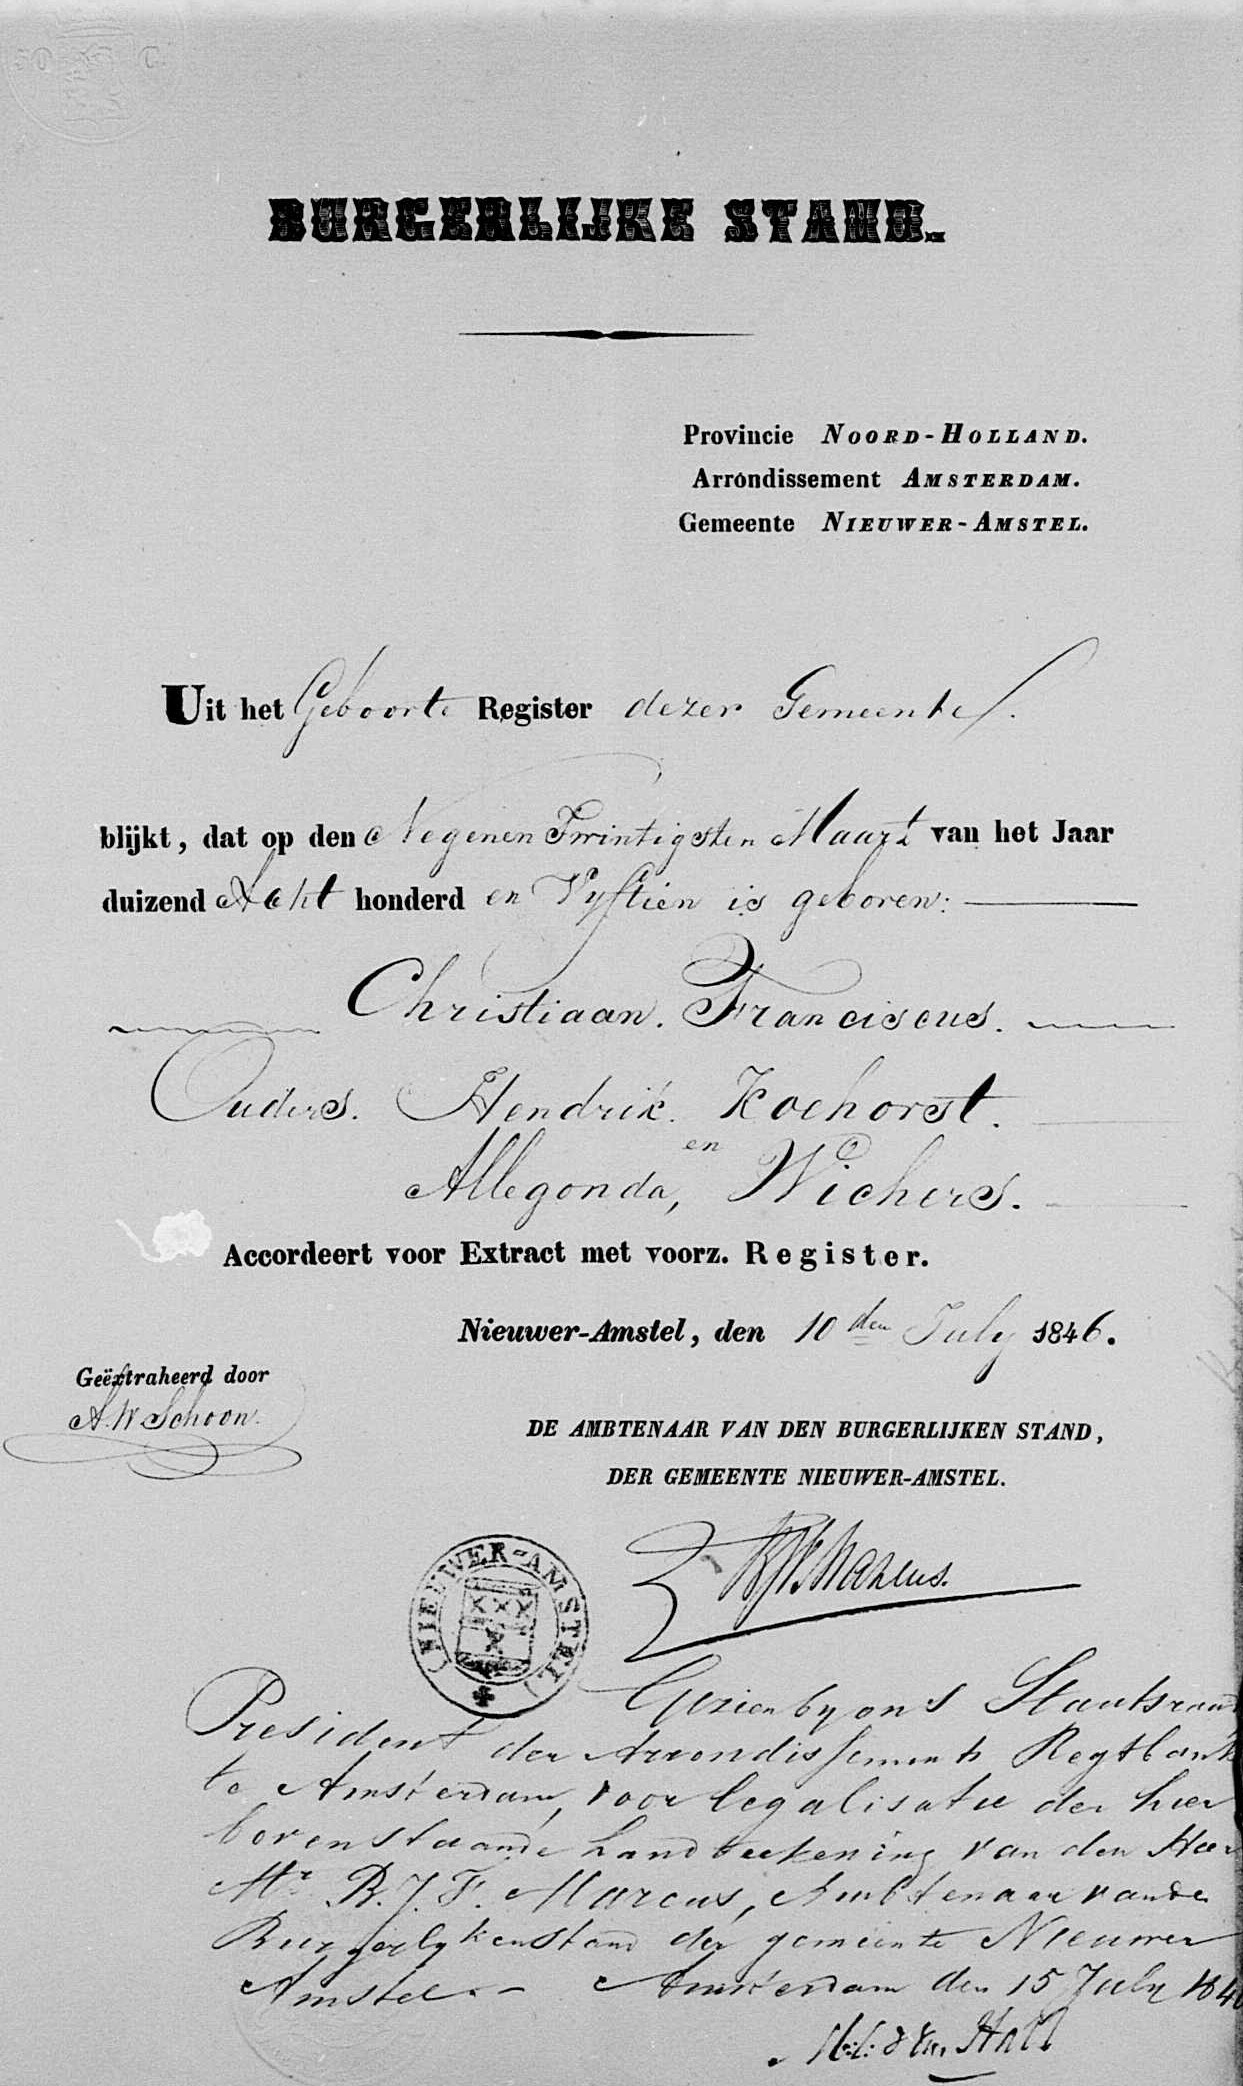 50 C.
BURGERLIJKE STAND.
Provincie NOORD-HOLLAND.
Arrondissement AMSTERDAM.
Gemeente NIEUWER-AMSTEL.
Uit het Geboorte Register dezer Gemeente.
blijkt, dat op den Negenen Twintigsten Maart van het Jaar
duizend Acht honderd en Vyftien is geboren:
Christiaan. Franciscus.
Ouders. Hendrik. Kochorst.
en
Allegonda, Wichers.
Accordeert voor Extract met voorz. Register.
Nieuwer-Amstel, den 10den July 1846.
Geëxtraheerd door
A. W Schoon.
DE AMBTENAAR VAN DEN BURGERLIJKEN STAND,
DER GEMEENTE NIEUWER-AMSTEL.
Marcus.
NIEUWER-AMSTEL
Gezien by ons Staatsraad
President der Arrondissements Regtbank
te Amsterdam, voor legalisatie der hier
bovenstaande handteekening van den Heer
Mr. B. J. F. Marcus, Ambtenaar van de
Burgerlyken stand der gemeente Nieuwer
Amstel.- Amsterdam den 15 July 184
van Hall